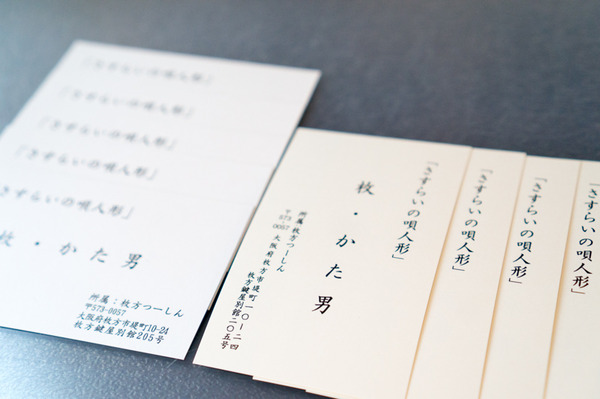 「さすらいの唄人形」
「さすらいの唄人形」
「さすらいの唄人形」
「さすらいの唄人形」
さすらいの唄人形」
枚・かた男
所属：枚方つーしん
〒573-0057
大阪府枚方市堤町10-24
枚方鍵屋別館205号
「さすらいの唄人形」
枚・かた男
所属 枚方つーしん
〒573-0057 大阪府枚方市堤町一〇ー二四
枚方鍵屋別館二〇五号
「さすらいの唄人形」
「さすらいの唄人形」
「さすらいの唄人形」